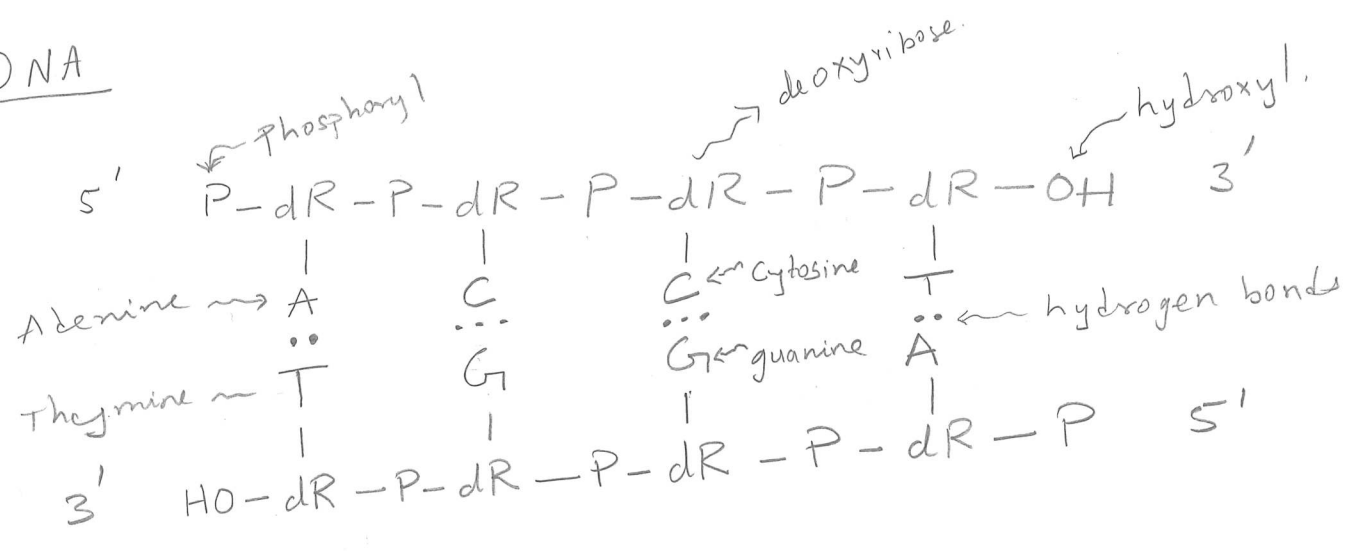 DNA
deoxyribose.
Phosphoryl
hydroxyl.
5' P-dR-P-dR-P-dR-P-dR-OH 3'
Adenine A C C cytosine T
•• ••• ••• •• hydrogen bonds
Thymine T G G guanine A
3' HO-dR-P-dR-P-dR-P-dR-P 5'